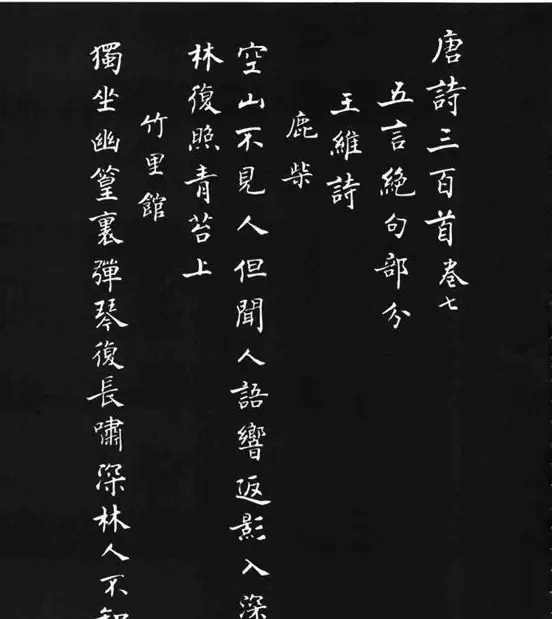 唐詩三百首卷七
五言絕句部分
王維詩
鹿柴
空山不見人但聞人語響返影入深
林復照青苔上
竹里館
獨坐幽篁裏彈琴復長嘯深林人不知